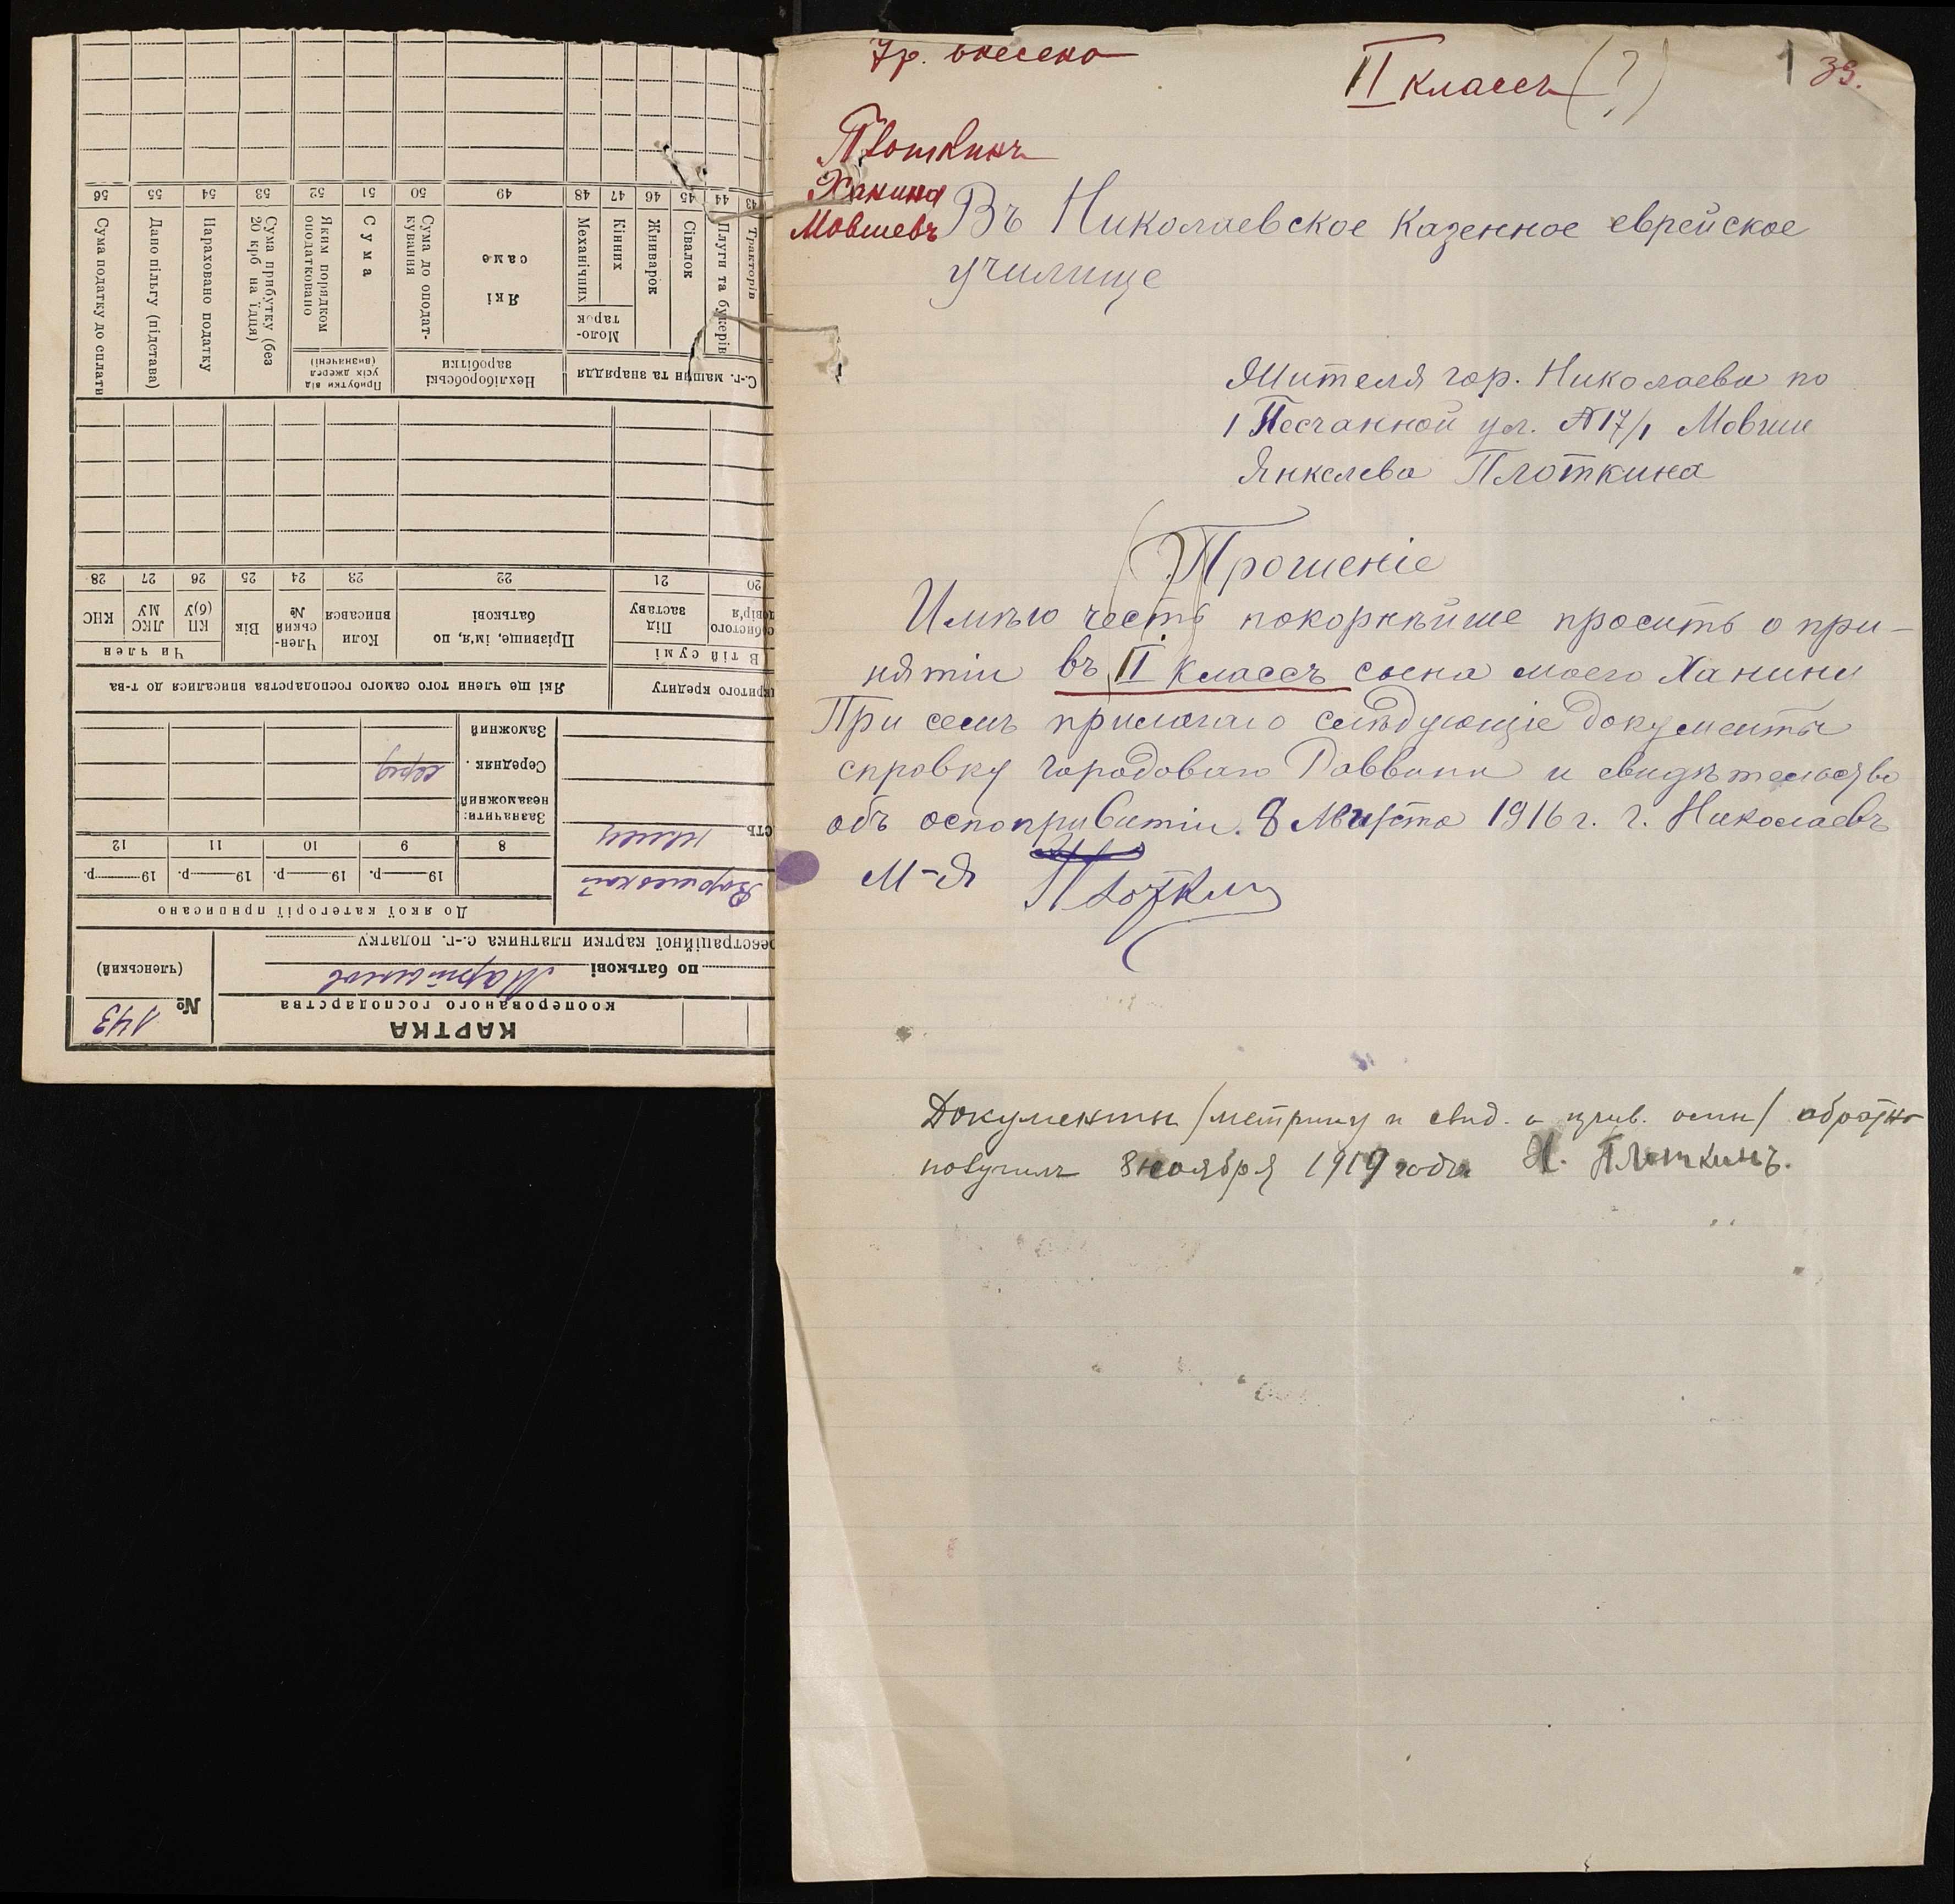 Ур. внесено
II классъ (?)
1 39.
Плоткинъ
Ханина
Мовшевъ
Въ Николаевское Казенное еврейское
училище
Жителя гор. Николаева по
1 Песчанной ул. №17/1 Мовши
Янкелева Плоткина
Прошеніе
Имѣю честь покорнѣйше просить о при-
нятіи въ II классъ сына моего Ханини
При семъ прилагаю слѣдующіе документы
справку городоваго Раввина и свидѣтельство
объ оспопривитіи. 8 Августа 1916 г. г. Николаевъ
М-Я Плоткин
Документы /метрику и свид. о прив. оспы/ обратно
получилъ 8 ноября 1919 года Х. Плоткинъ.
КАРТКА
кооперованого господарства
№ 143
(членський)
по батькові Мартинов
реєстраційної картки платника с.-г. податку
До якої категорії приписано
19 р. 19 р. 19 р. 19 р.
8 9 10 11 12
Зазначити:
незаможний
Середняк серед
Заможний
Які ще члени того самого господарства вписалися до т-ва
В тій сумі
Під заставу
Прізвище, ім'я, по батькові
Коли вписався
Член-ський №
Вік
Чи член
КП (б)У
ЛКС МУ
КНС
20 21 22 23 24 25 26 27 28
С.-г. машин та знаряддя
Нехліборобські заробітки
Прибутки від усіх джерел (визначені)
Тракторів
Плуги та букерів
Сівалок
Жниварок
Моло-тарок
Кінних
Механічних
Які саме
Сума до оподат-кування
Сума
Яким порядком оподатковано
Сума прибутку (без 20 крб на їдця)
Нараховано податку
Дано пільгу (підстава)
Сума податку до сплати
43 44 45 46 47 48 49 50 51 52 53 54 55 56